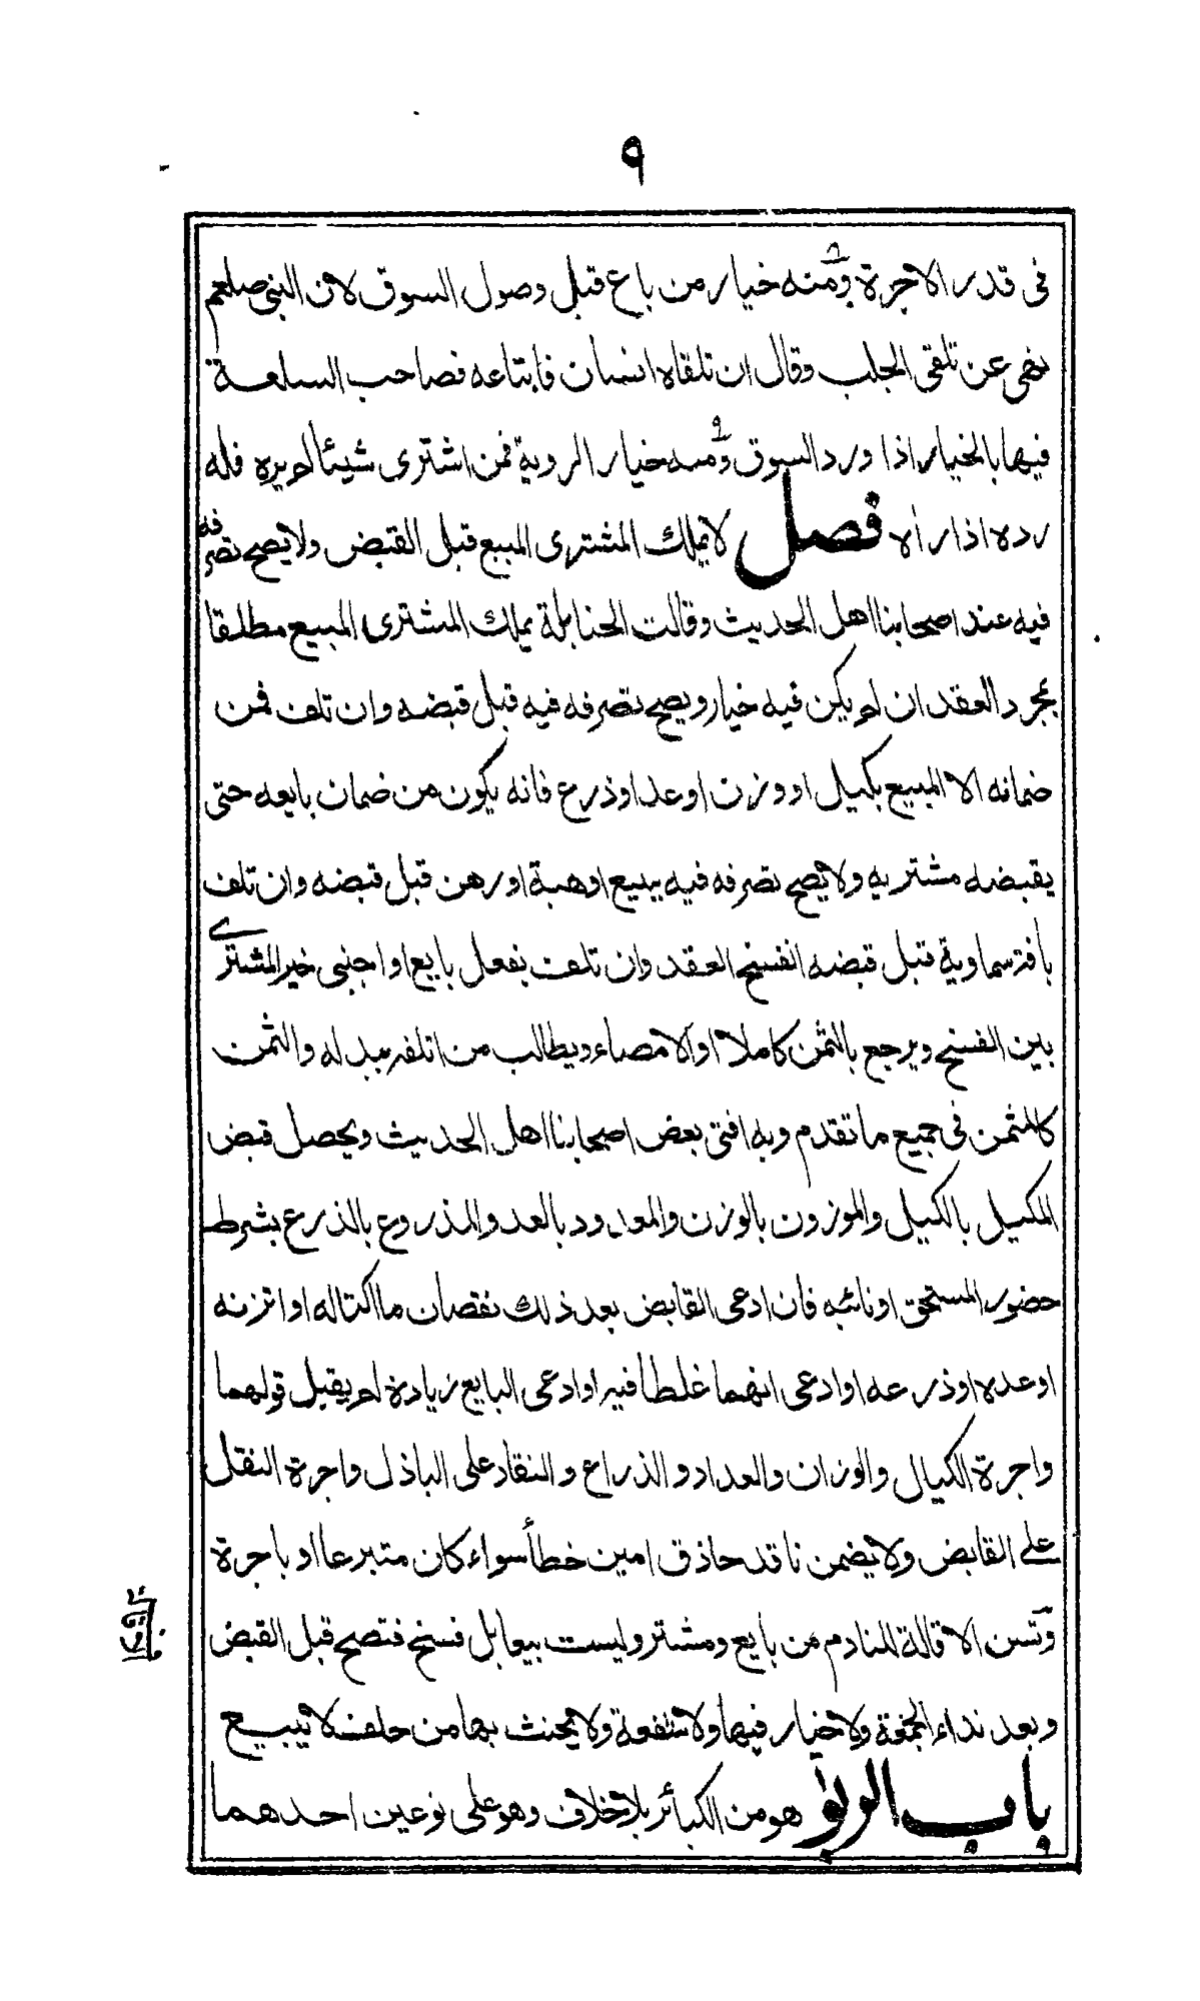 ٩
فى قدر الاجرة ومنه خيار من باع قبل وصول السوق لان النبى صلعم
نهى عن تلقى الجلب وقال ان تلقاه انسان فابتاعه فصاحب السلعة
فيها بالخيار اذا ورد السوق ومنه خيار الروية فمن اشترى شيئا لم يره فله
رده اذا رأه فصل لا يملك المشترى المبيع قبل القبض ولا يصح تصرفه
فيه عند اصحابنا اهل الحديث وقالت الحنابلة يملك المشترى المبيع مطلقا
بمجرد العقد ان لم يكن فيه خيار ويصح تصرفه فيه قبل قبضه وان تلف فمن
ضمانه الا المبيع بكيل او وزن او عد او ذرع فانه يكون من ضمان بايعه حتى
يقبضه مشتريه ولا يصح تصرفه فيه ببيع او هبة او رهن قبل قبضه وان تلف
بافة سماوية قبل قبضه انفسخ العقد وان تلف بفعل بايع او اجنبى خير المشترى
بين الفسخ ويرجع بالثمن كاملا او الامضاء ويطالب من اتلفه ببدله والثمن
كالمثمن فى جميع ما تقدم وبه افتى بعض اصحابنا اهل الحديث ويحصل قبض
المكيل بالكيل والموزون بالوزن والمعدود بالعد والمذروع بالذرع بشرط
حضور المستحق او نائبه فان ادعى القابض بعد ذلك نقصان ما اكتاله او اتزنه
او عده او ذرعه او ادعى انهما غلطا فيه او ادعى البايع زيادة لم يقبل قولهما
واجرة الكيال والوزان والعداد والذراع والنقاد على الباذل واجرة النقل
على القابض ولا يضمن ناقد حاذق امين خطأ سواء كان متبرعا او باجرة
وتسن الاقالة للنادم من بايع ومشتر وليست بيعا بل فسخ فتصح قبل القبض
وبعد نداء الجمعة ولا خيار فيها ولا شفعة ولا يحنث بها من حلف لا يبيع
باب الربوا هو من الكبائر بلا خلاف وهو على نوعين احدهما